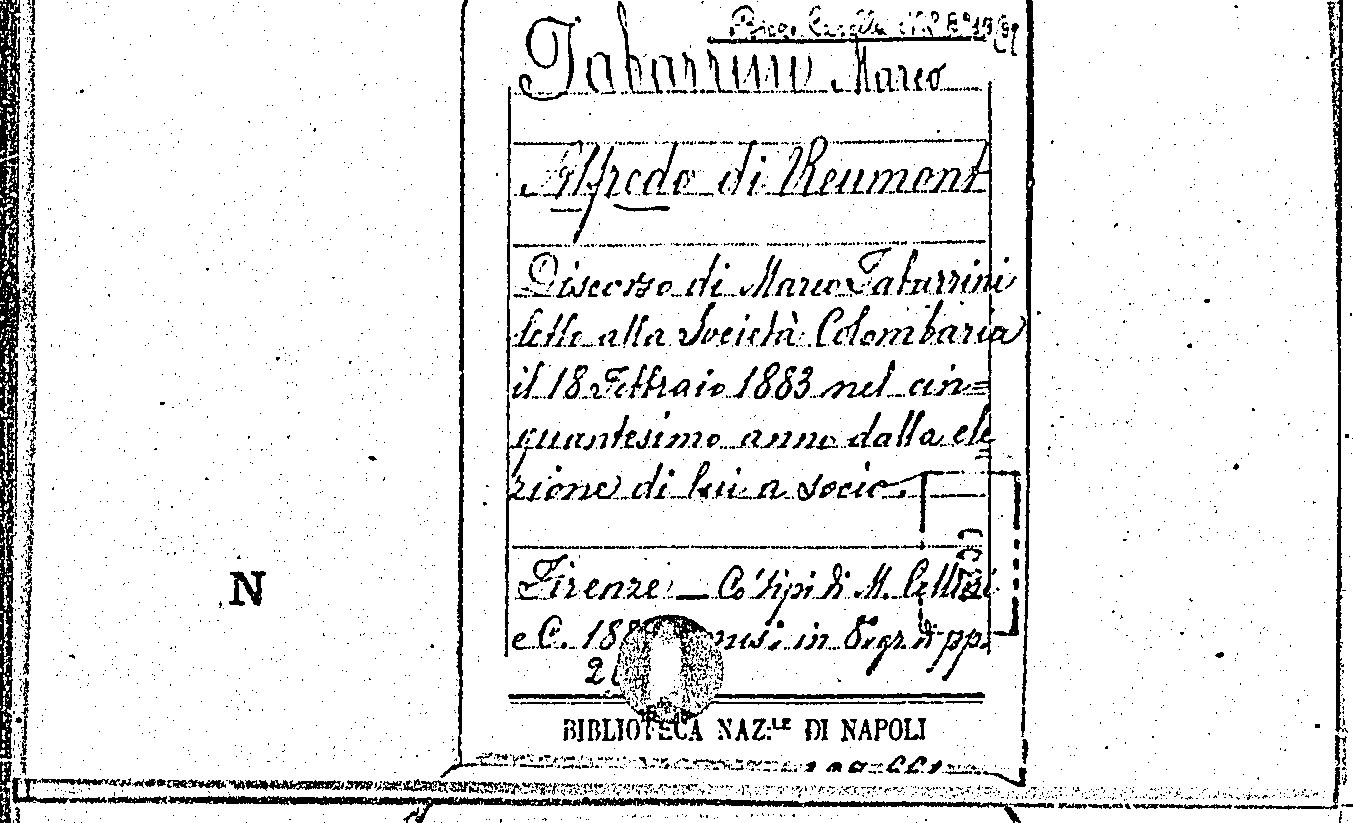 Tabarrini Marco
Alfredo di Reumont
Discorso di Marco Tabarrini
letto alla Società Colombaria
il 18 Febbraio 1883 nel cin=
quantesimo anno dalla ele
zione di lui a socio.
Firenze — Co' tipi di M. Cellini
e C. in 8° gr. di pp.
BIBLIOTECA NAZ:LE DI NAPOLI
N